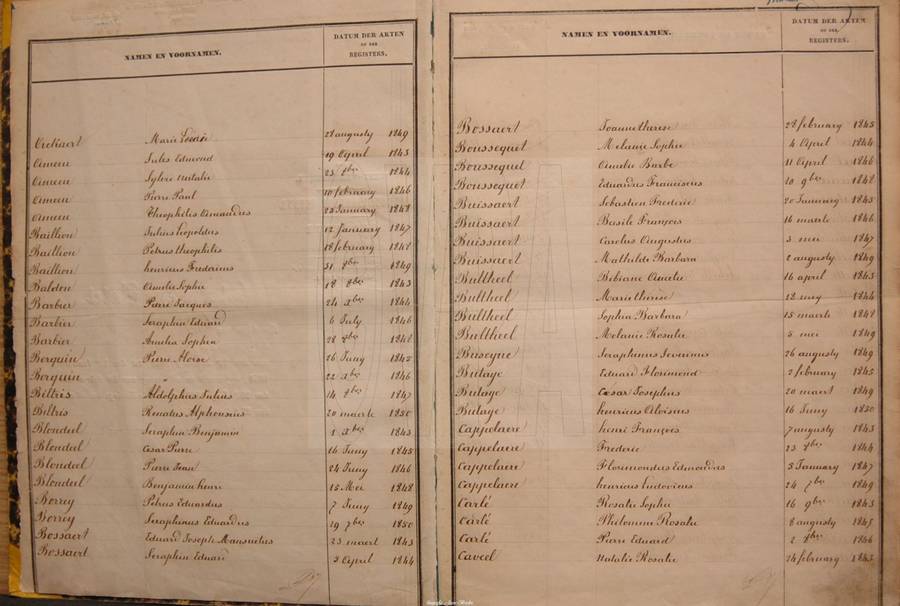 NAMEN EN VOORNAMEN.
DATUM DER AKTEN
OF DER
REGISTERS.
Marie 28 augusty 1849
Ameeu Jules Edmond 19 April 1843
Ameeu Sylvie Natalie 1844
Ameeu Pierre Paul 10 february 1846
Ameeu Theophilis Amandus 23 January 1848
Baillieu Julius Leopoldus 12 January 1847
Baillieu Petrus theophilis 18 february 1848
Baillieu henricus Fredericus 31 1849
Amelie Sophie 18 8ber 1843
Barbier Pierre Jacques 24 xber 1844
Barbier Seraphin Eduard 6 July 1846
Barbier Amelia Sophia 28 1848
Berquin Pierre Aloise 26 Juny 1842
Berquin 22 xber 1846
Beltris Aldolphus Julius 14 8ber 1847
Beltris Renatus Alphonsius 20 maarte 1850
Blondeel Seraphin Benjamin 1 xber 1843
Blondeel Cesar Pierre 16 Juny 1845
Blondeel Pierre Jean 24 Juny 1846
Blondeel Benjamin henri 15 Mei 1848
Borrey Petrus Eduardus 7 Juny 1849
Borrey Seraphinus Eduardus 19 7ber 1850
Bossaert Eduard Joseph Mansuetus 23 maert 1843
Bossaert Seraphin Eduard 3 April 1844
NAMEN EN VOORNAMEN.
DATUM DER AKTEN
OF DER
REGISTERS.
Bossaert Joannetherese 28 february 1845
Boussequet Melanie Sophie 4 April 1844
Boussequet Amelie Barbe 11 April 1846
Boussequet Eduardus Franciscus 20 9ber 1848
Buissaert Sebastien Frederic 20 January 1843
Buissaert Basile François 16 maarte 1846
Buissaert Carolus Augustus 3 mei 1847
Buissaert Mathilde Barbara 2 augusty 1849
Bultheel Bibiane Amelie 16 april 1843
Bultheel Marie therese 12 mey 1844
Bultheel Sophia Barbara 15 maerte 1848
Bultheel Melanie Rosalie 5 mei 1849
Buseyne Seraphinus Severinus 26 augusty 1849
Butaye Eduard Florimond 2 february 1845
Butaye Cæsar Josephus 20 maart 1849
Butaye henricus Aloïsius 16 Juny 1850
Cappelaere henri François 7 augusty 1843
Cappelaere Frederic 23 1844
Cappelaere Florimondus Edmondus 5 January 1847
Cappelaere henricus Ludovicus 24 7ber 1849
Carlé Rosalie Sophie 16 9ber 1843
Carlé Philomene Rosalie 8 augusty 1845
Carlé Pierre Eduard 2 1846
Natalie Rosalie 24 february 1843